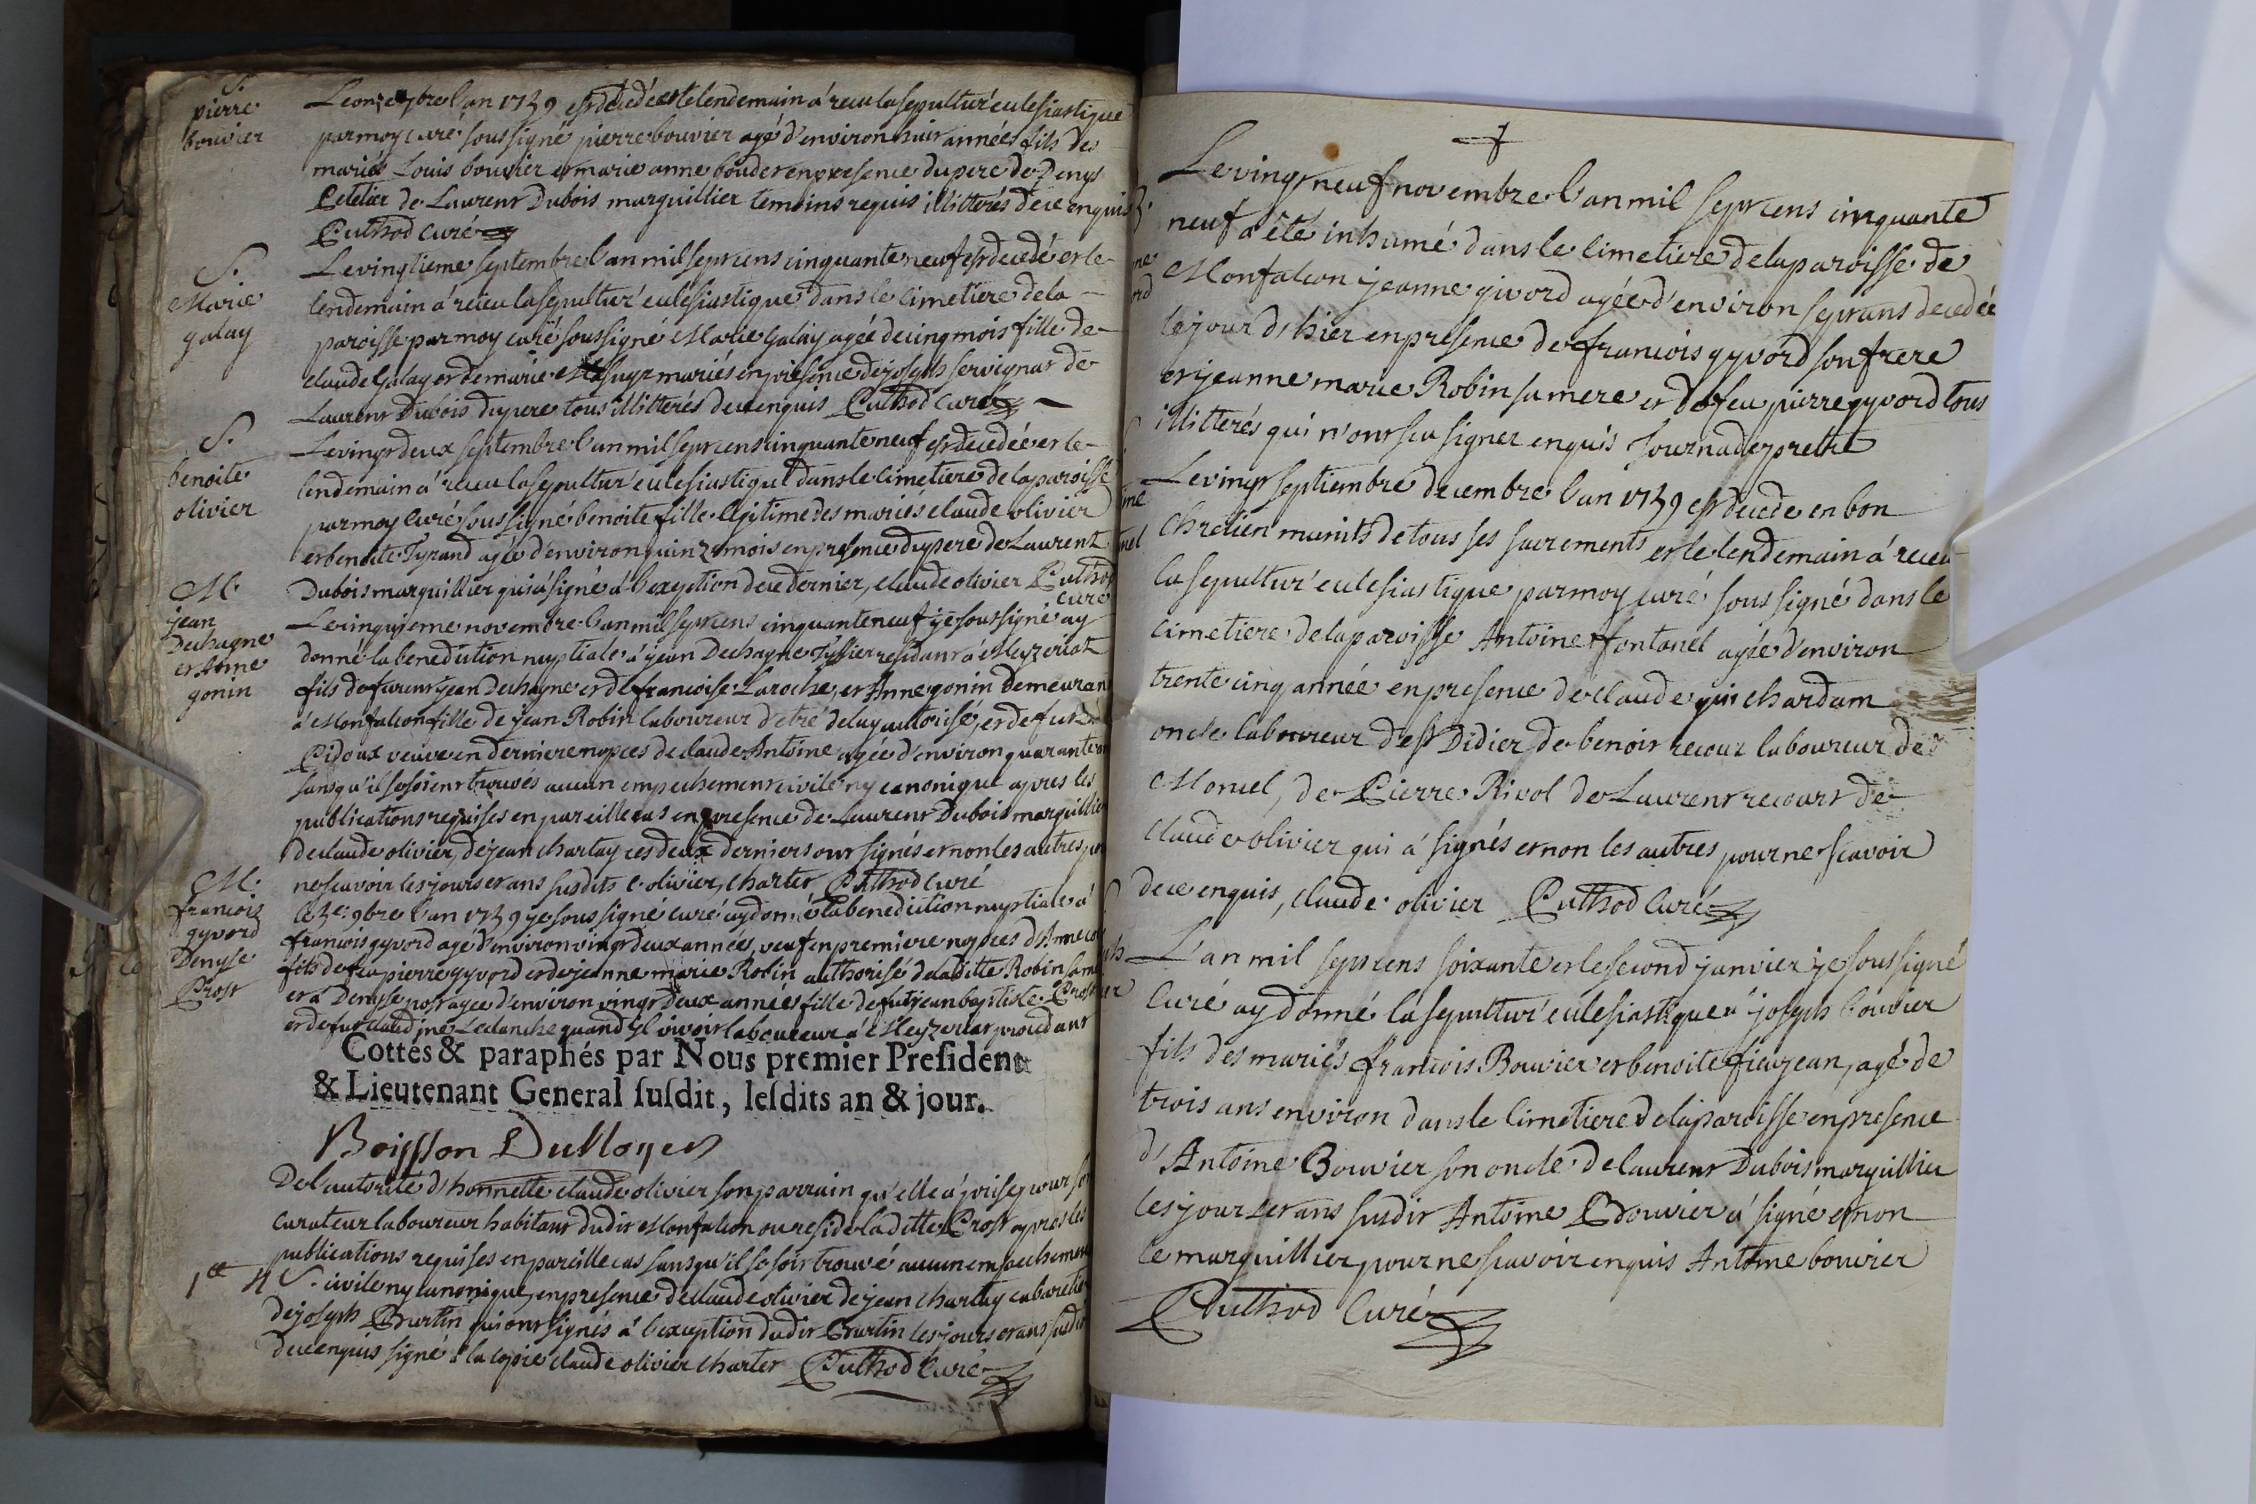 S.
pierre
bouvier
Le onze 7bre l'an 1759 est decedé et le lendemain a' receu la sepultur' eclesiastique
par moy curé soussigné pierre bouvier agé d'environ huit années fils des
mariés Louis bouvier et marie anne bouder en presence du pere de Denys
de Laurent Dubois marguillier temoins requis illitterés de ce enquis
Cuthod curé
S.
Marie
galay
Le vingtieme septembre l'an mil sept cens cinquante neuf est decedé et le
lendemain a' receu la sepultur' eclesiastique dans le cimetiere de la
paroisse par moy curé soussigné Marie Galay agée de cinq mois fille de
claude Galay et de marie mariés en presence de joseph servignat de
Laurent Dubois du pere tous illitterés de ce enquis Cuthod curé
S.
benoite
olivier
Le vingt deux septembre l'an mil sept cens cinquante neuf est decedée et le
lendemain a' receu la sepultur' eclesiastique dans le cimetiere de la paroisse
par moy curé soussigné benoite fille legitime des mariés claude olivier
et benoite Tyrand agée d'environ quinze mois en presence du pere de Laurent
Dubois marguillier qui a' signé a' l'exeption de ce dernier, claude olivier Cuthod
curé
M.
jean
Dechagne
et Anne
gonin
Le cinquieme novembre l'an mil sept cens cinquante neuf je soussigné ay
donné la benediction nuptiale a' jean Dechagne Tissier residant a Meyzeriat
fils de furent jean dechagne et de francoise Laroche, et Anne gonin Demeuran
a' Monfalcon fille de jean Robin laboureur d'etré de luy autorisé, et de fut
Pidoux veuve en derniere nopces de claude Antoine agée d'environ quarante
sans qu'il se soient trouvés aucun empechement civile ny canonique apres les
publications requises en pareille cas en presence de Laurent Dubois marguillier
de claude olivier, de jean chartay ces deux derniers ont signés et non les autres pour
ne scavoir les jours et ans susdits C. olivier, charter Cuthod Curé
M.
francois
gyvord
Denyse
Prost
Le 9bre l'an 1759 je sous signé curé ay donné la benediction nuptiale a'
francois gyvord agé d'environ vingt deux années, veuf en premiere nopces d'Anne
fils de feu pierre gyvord et de jeanne marie Robin authorisé de laditte Robin sa me
et a' Denyse post agée d'environ vingt deux années fille de fut jean baptiste Prost
et de fut claudine Leclanche quand yl vivoir laboureur a' Meyzeriat procedant
Cottés & paraphés par Nous premier President
& Lieutenant General susdit, lesdits an & jour.
De l'autorité d'honnette claude olivier son parrain qu'elle a' prise pour son
curateur laboureur habitant dudit Monfalcon ou reside laditte Prost apres les
publications requises en pareille cas sans qu'il se soit trouvé aucun empechement
1ce
4 S. civile ny canonique, en presence de claude olivier de jean chartay cabaretie
de joseph Burtin qui ont signés a' l'exception dudit Burtin les jours et ans susdit
de ce enquis signé a la copie claude olivier charter Cuthod Curé
Le vingt neuf novembre l'an mil sept cens cinquante
neuf a été inhumé dans le cimetiere de la paroisse de
Monfalcon jeanne givord agée d'environ sept ans decedée
le jour d'hier en presence de francois gyvord son frere
et jeanne marie Robin sa mere et de feu pierre gyvord tous
illitterés qui n'ont sçu signer enquis Tournadez prettre
Le vingt septiembre decembre l'an 1759 est decede en bon
chretien munits de tous ses sacrements et le lendemain a' receu
la sepultur' eclesiastique par moy curé sous signé dans le
cimetiere de la paroisse Antoine fontanel agée d'environ
trente cinq année en presence de claude guichardam
oncle laboureur de st Didier de benoit recour laboureur de
Moncel, de Pierre Rivol de Laurent recourt de
claude olivier qui a' signés et non les autres pour ne scavoir
de ce enquis, claude olivier Cuthod Curé
L'an mil sept cens soixante et le second janvier je soussigné
Curé ay donné la sepultur' eclesiastique a' joseph bouvier
fils des mariés francois Bouvier et benoite fiewjean, agé de
trois ans environ dans le cimetiere de la paroisse en presence
d'Antoine Bouvier son oncle de laurent Dubois marguillier
les jour et ans susdit Antoine Bouvier a' signé et non
le marguillier pour ne scavoir enquis Antoine bouvier
Cuthod Curé